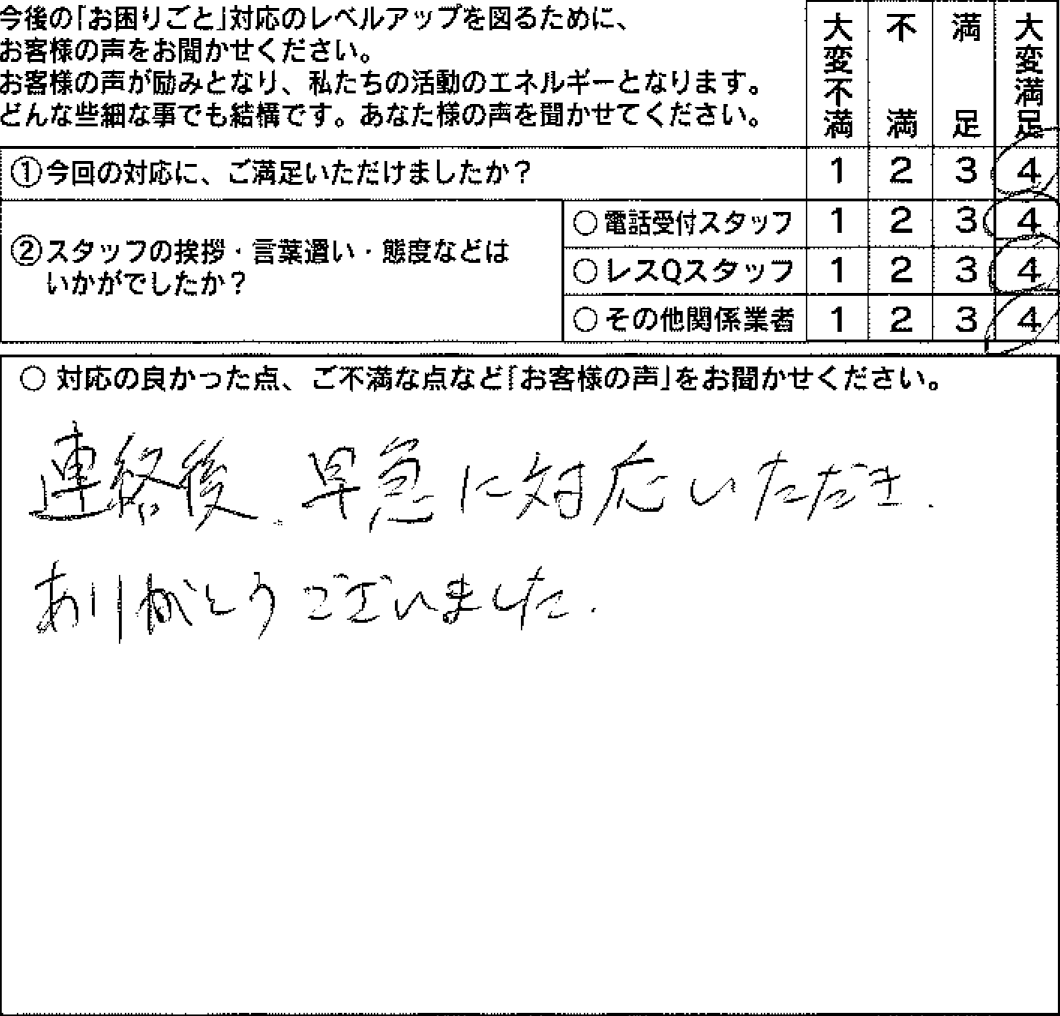 今後の「お困りごと」対応のレベルアップを図るために、
お客様の声をお聞かせください。
お客様の声が励みとなり、私たちの活動のエネルギーとなります。
どんな些細な事でも結構です。あなた様の声を聞かせてください。
大変不満 不満 満足 大変満足
①今回の対応に、ご満足いただけましたか？ 1 2 3 4
②スタッフの挨拶・言葉遣い・態度などは
いかがでしたか？
○電話受付スタッフ 1 2 3 4
○レスQスタッフ 1 2 3 4
○その他関係業者 1 2 3 4
○ 対応の良かった点、ご不満な点など「お客様の声」をお聞かせください。
連絡後、早急に対応いただき、
ありがとうございました。